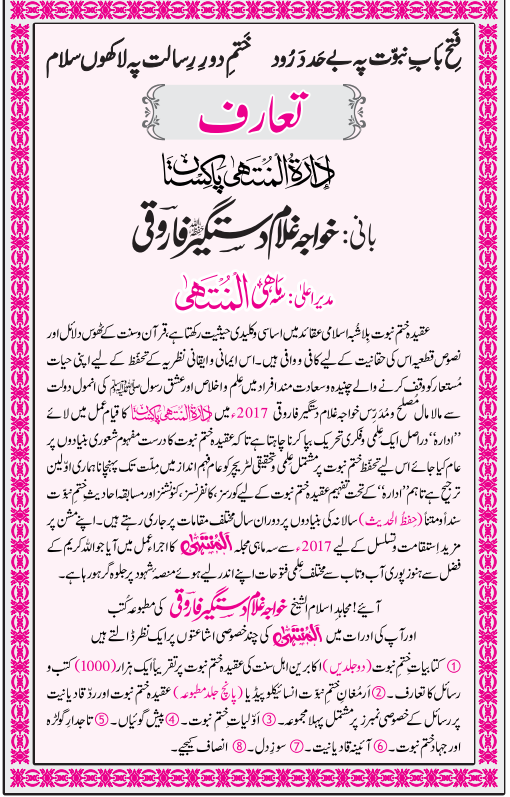 فتحِ بابِ نبوّت پہ بے حد دَرُود ختمِ دورِ رِسالت پہ لاکھوں سلام
تعارف
اِدارۃُ الْمُنْتَهٰی پاکستان
بانی: خواجہ غلام دستگیر فاروقی
مدیر اعلیٰ: سہ ماہی اَلْمُنْتَهٰی
عقیدہ ختم نبوت بلاشبہ اسلامی عقائد میں اساسی و کلیدی حیثیت رکھتا ہے، قرآن و سنت کے ٹھوس دلائل اور
نصوصِ قطعیہ اس کی حقانیت کے لیے کافی و وافی ہیں۔ اس ایمانی و ایقانی نظریہ کے تحفظ کے لیے اپنی حیات
مُستعار کو وقف کرنے والے چنیدہ و سعادت مند افراد میں عِلم و اخلاص اور عشقِ رسول ﷺ کی انمول دولت
سے مالا مال مُصلح و مُدَرِّس خواجہ غلام دستگیر فاروقی 2017ء میں اِدارۃُ الْمُنْتَهٰی پاکستان کا قیام عمل میں لائے
’’ادارہ‘‘ دراصل ایک عِلمی و فکری تحریک بپا کرنا چاہتا ہے تاکہ عقیدہ ختم نبوت کا درست مفہوم شعوری بنیادوں پر
عام کیا جائے اس لیے تحفظ ختم نبوت پر مشتمل علمی و تحقیقی لٹریچر کو عام فہم انداز میں مِلّت تک پہنچانا ہماری اوّلین
ترجیح ہے تاہم ’’ادارہ‘‘ کے تحت تفہیمِ عقیدہ ختم نبوت کے لیے کورسز، کانفرنسز، کنونشنز اور مسابقہ احادیثِ ختمِ نبوّت
سنداً و متناً (حفظُ الحدیث) سالانہ کی بنیادوں پر دورانِ سال مختلف مقامات پر جاری رہتے ہیں۔ اپنے مشن پر
مزید اِستقامت و تسلسل کے لیے 2017ء سے سہ ماہی مجلہ اَلْمُنْتَهٰی کا اجراء عمل میں آیا جو اللہ کریم کے
فضل سے ہنوز پوری آب و تاب سے مختلف عِلمی فتوحات اپنے اندر لیے ہوئے منصۂ شہود پر جلوہ گر ہو رہا ہے۔
آیئے! مجاہدِ اسلام الشیخ خواجہ غلام دستگیر فاروقی کی مطبوعہ کُتب
اور آپ کی ادارت میں اَلْمُنْتَهٰی کی چند خصوصی اشاعتوں پر ایک نظر ڈالتے ہیں
① کتابیاتِ ختمِ نبوت (دو جلدیں) اکابرینِ اہل سنت کی عقیدہ ختم نبوت پر تقریباً ایک ہزار (1000) کتب و
رسائل کا تعارف۔ ② اَرمغانِ ختمِ نبوّت انسائیکلوپیڈیا (پانچ جلد مطبوعہ) عقیدہ ختم نبوت اور ردِّ قادیانیت
پر رسائل کے خصوصی نمبرز پر مشتمل پہلا مجموعہ۔ ③ اوّلیاتِ ختم نبوت۔ ④ پیش گوئیاں۔ ⑤ تاجدارِ گولڑہ
اور جہادِ ختم نبوت۔ ⑥ آئینہ قادیانیت۔ ⑦ سوزِ دل۔ ⑧ انصاف کیجیے۔